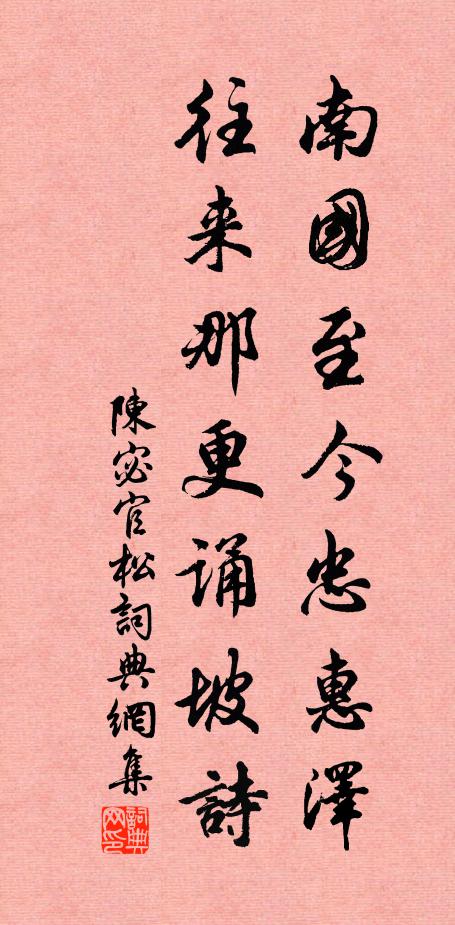 南國至今忠惠澤
往来那更诵坡詩
陳宓官松詞典網集
詞典网印